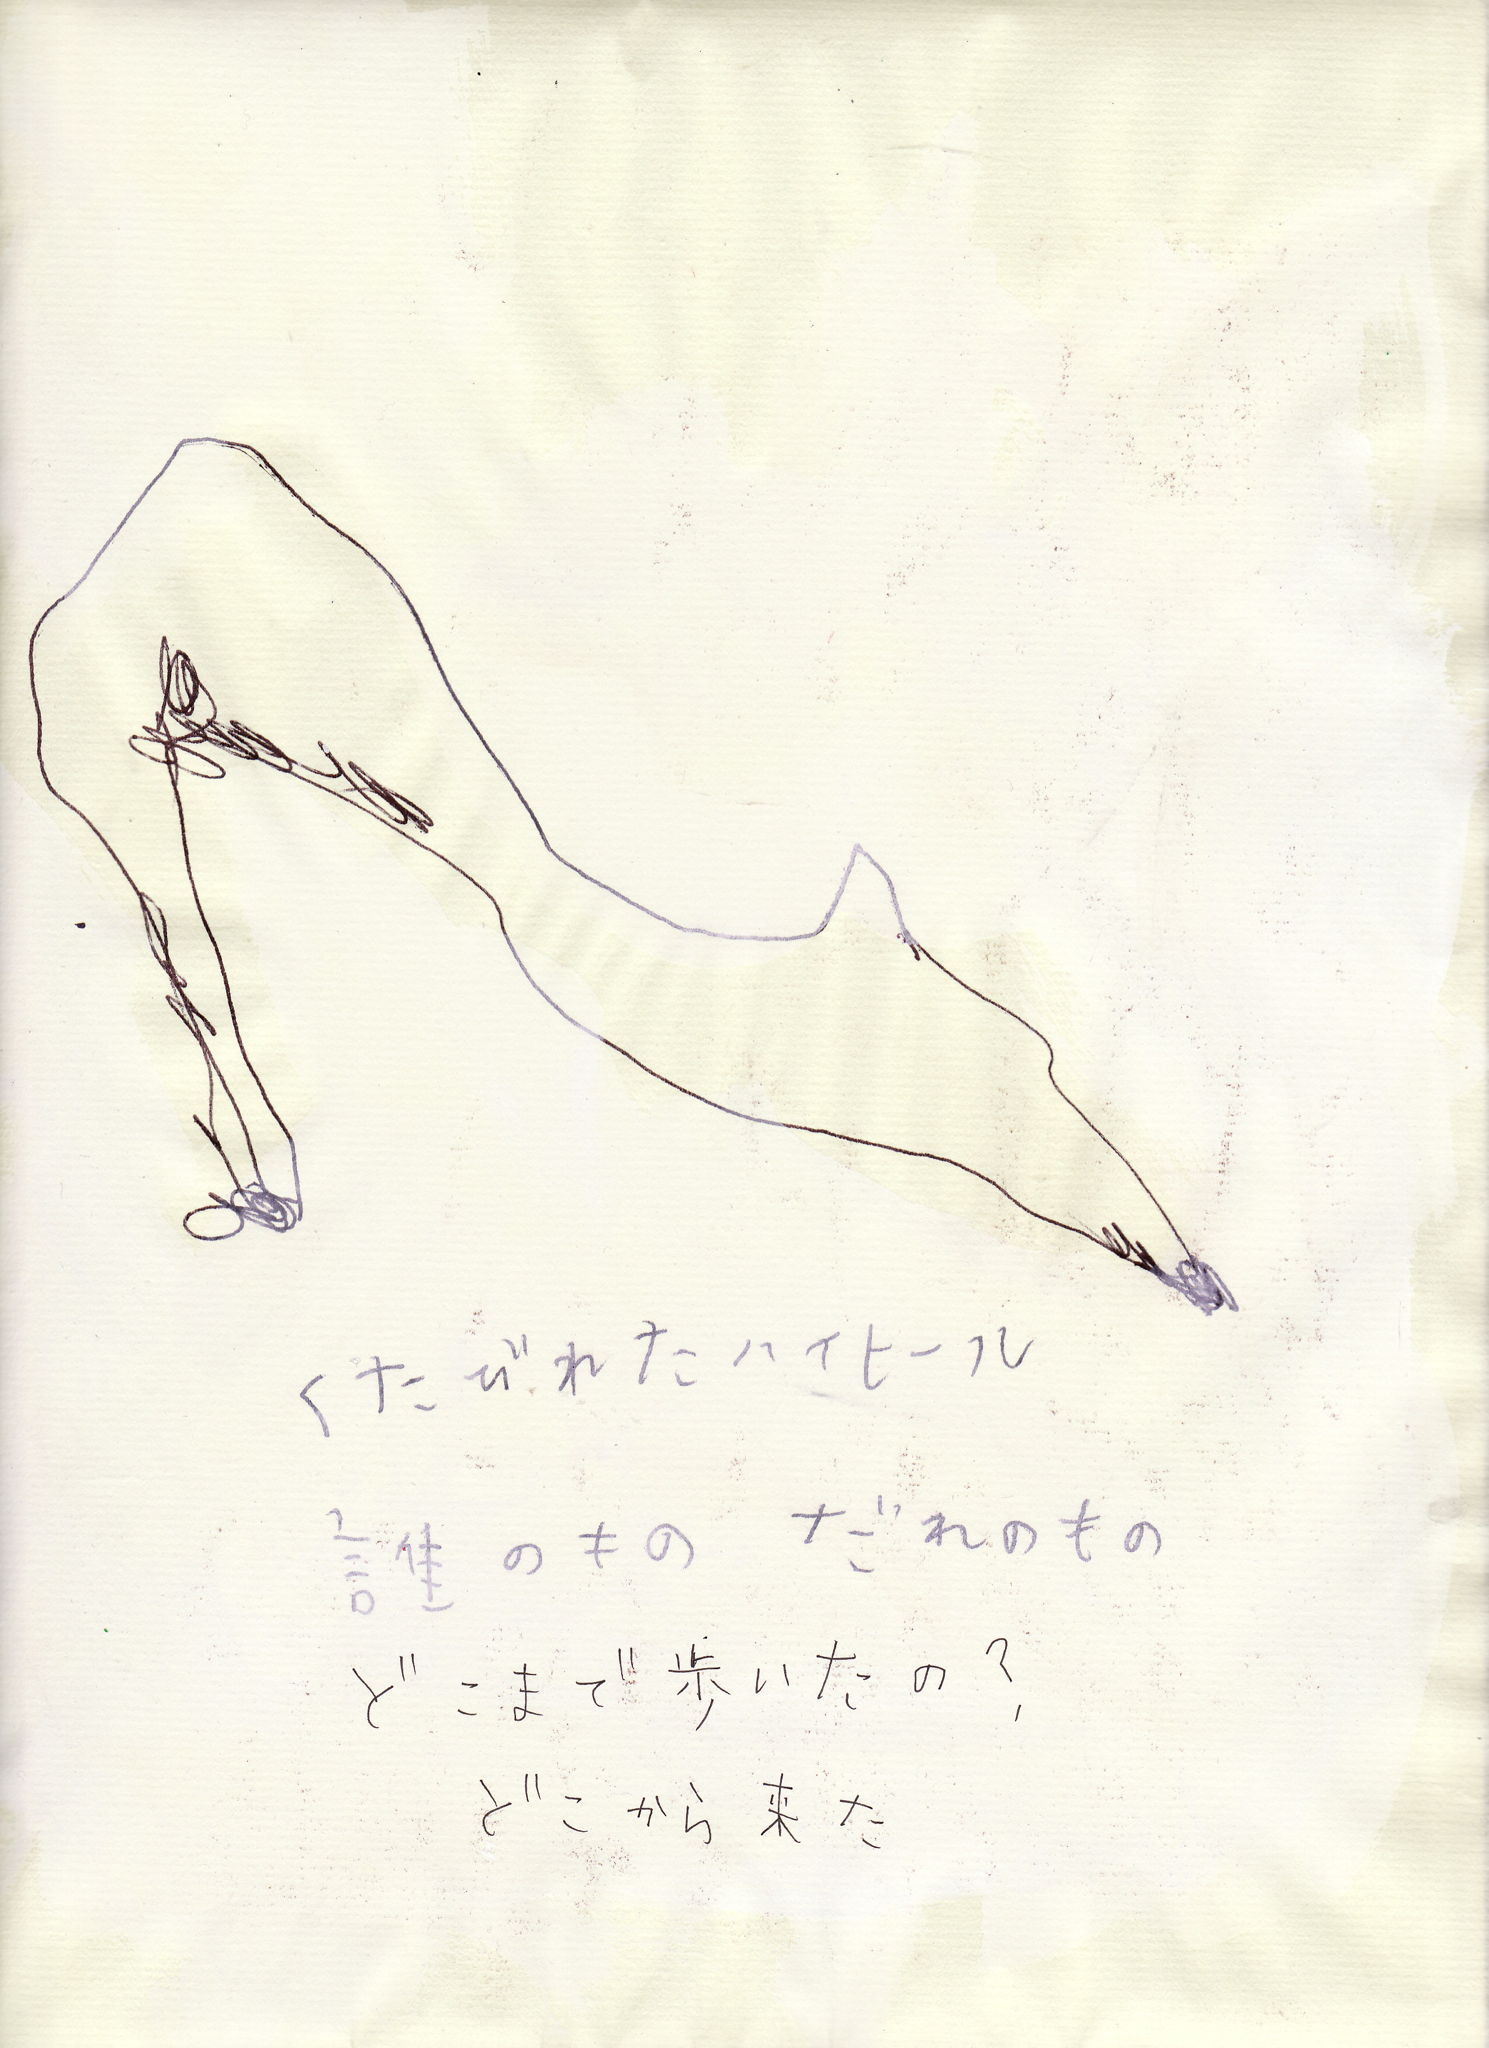 くたびれたハイヒール
誰のもの だれのもの
どこまで歩いたの?
どこから来た